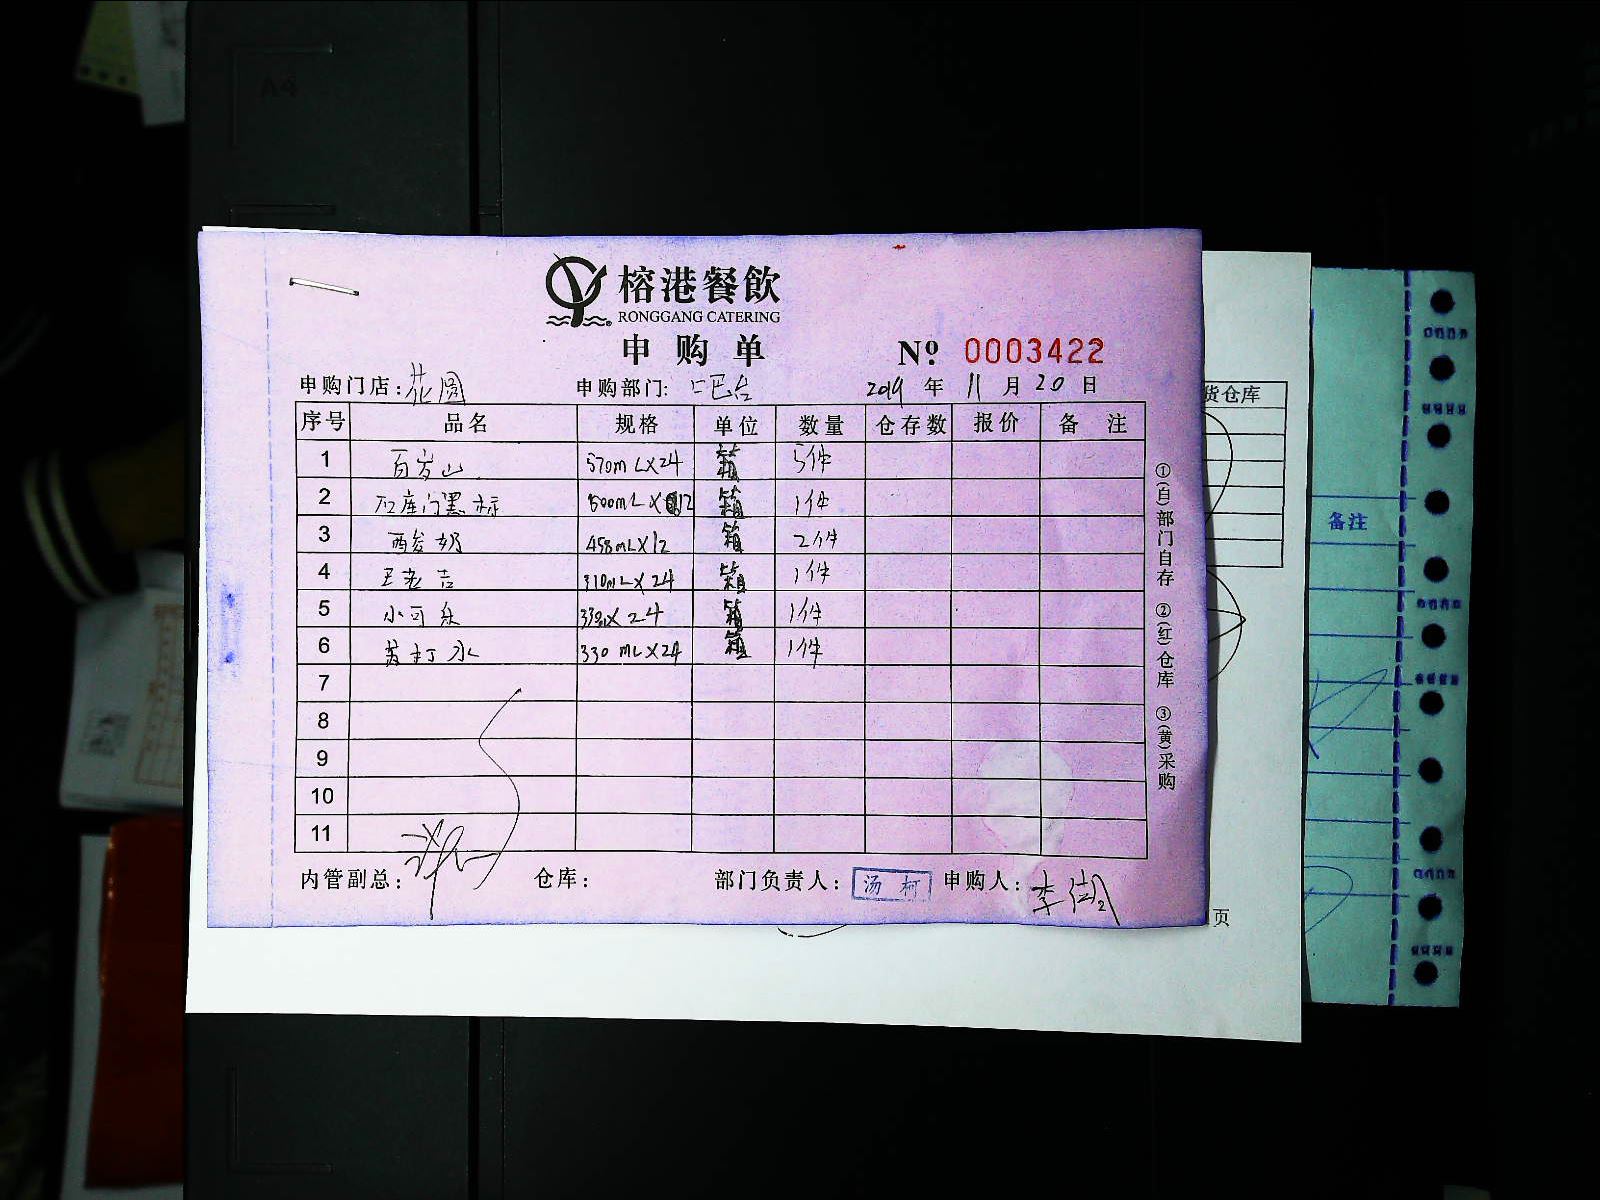 榕港餐飲
RONGGANG CATERING
申购单 Nº 0003422
申购门店：花园 申购部门：吧台 2019年11月20日
序号 品名 规格 单位 数量 仓存数 报价 备注
1 百岁山 570mL×24 箱 5件
2 石库门黑标 500mL×12 箱 1件
3 酸奶 458mL×12 箱 2件
4 王老吉 310mL×24 箱 1件
5 小可乐 330×24 箱 1件
6 苏打水 330ML×24 箱 1件
7
8
9
10
11
内管副总： 仓库： 部门负责人：汤柯 申购人：李
①(白)部门自存 ②(红)仓库 ③(黄)采购
货仓库
页
备注
A4